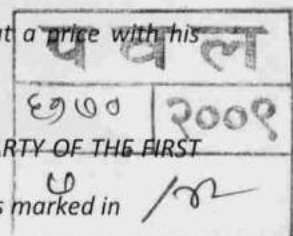 at a price with his
प व ल
६१७० २००९
RTY OF THE FIRST
s marked in